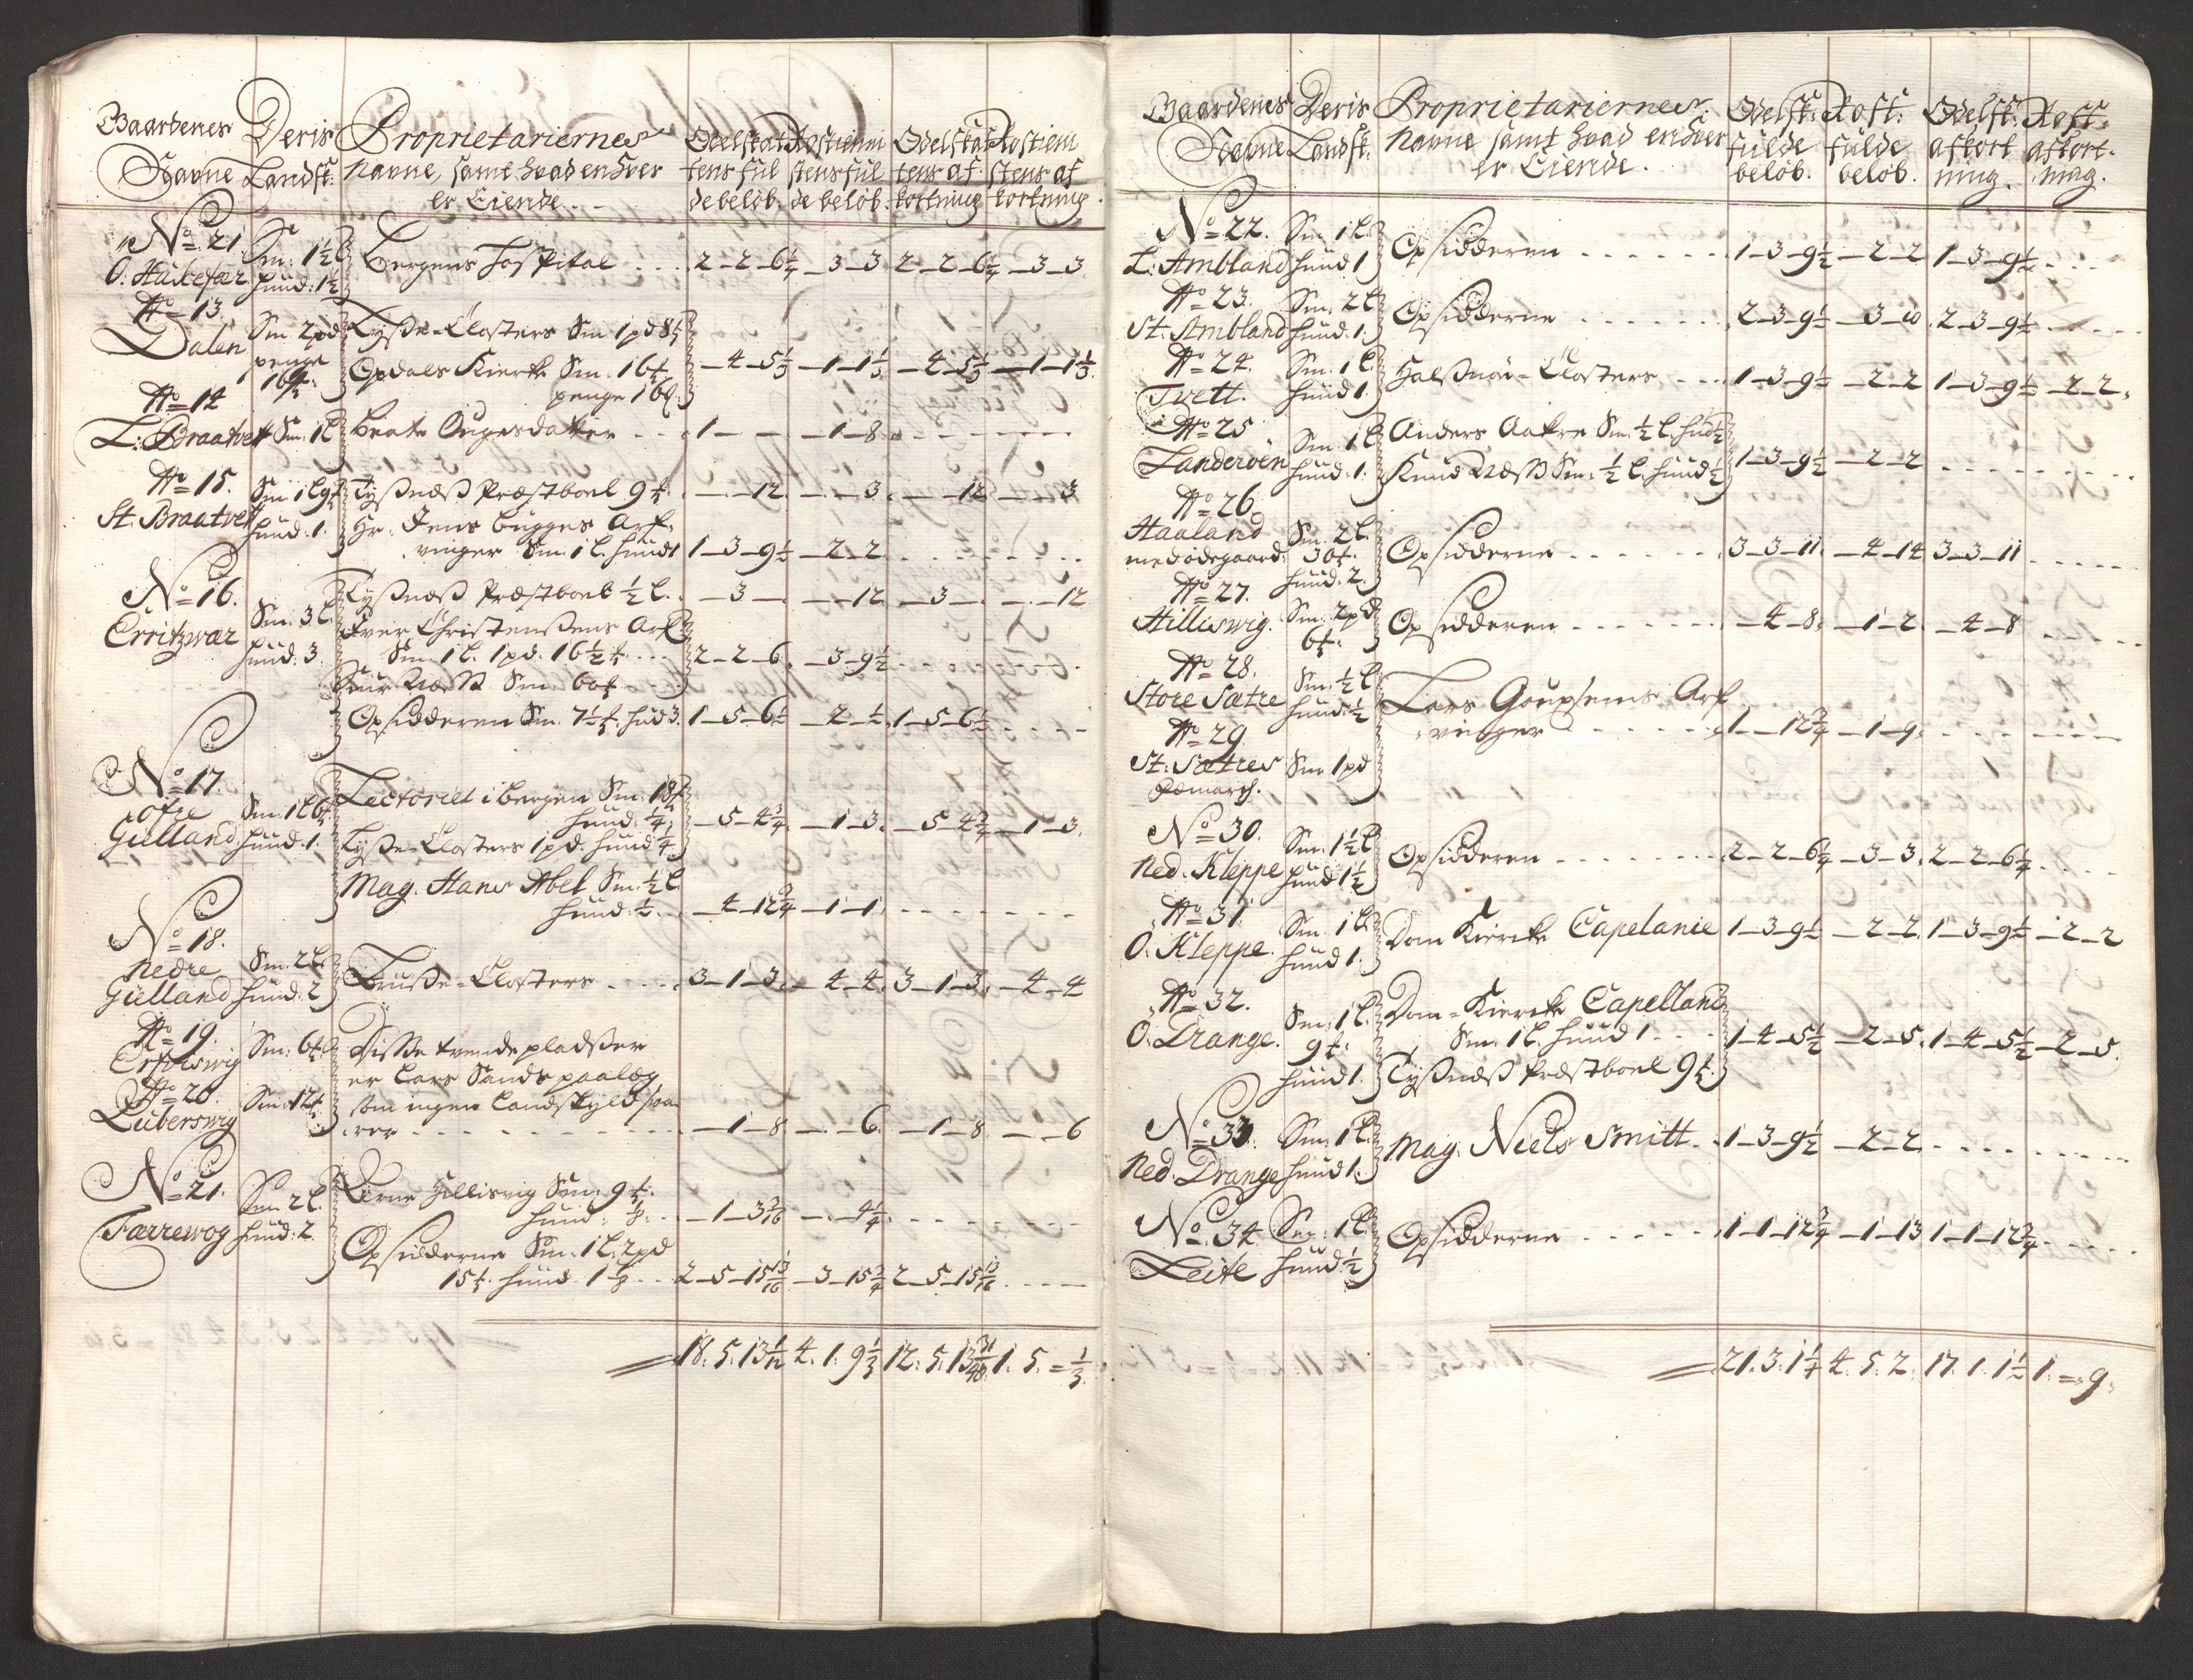 Gaardenes Deris Proprietariernes Odelskat Rostienni Odelskat Rostieni
Navne Landsk: Navne, samt hvad enhver tens ful stens ful tens af stens af
er Eiende. de beløb. de beløb. kortning kortning
No 21. Sm: 1½ l Bergens Hospital 2-2-6¼ -3-3 2-2-6¼ -3-3
O. Huusefær hund: 1½
No 13. Sm 2 pd Lysse-Closters Sm 1 pd 8
Dalen penge
16 Opdals Kierke Sm. 16 -4-5⅓ -1-1⅓ -4-5⅓ -1-1⅓
penge 16 ß.
No 14
L: Braatvet Sm: 1 l Beate Ougesdatter 1-- -1-8
No 15. Sm 1 l 9 Tyßneß Præstboel 9 --12 --3 --12 --3
St. Braatvet hund. 1. Hr. Jens Bugges Arf-
vinger Sm. 1 l. hund 1 1-3-9½ -2-2
No 16. Tyßneß Præstboel ½ l. -3- --12 -3- --12
Erritzwær Sm. 3 l. Iver Christensens Arf
hund. 3 Sm 1 l. 1 pd. 16½ 2-2-6 -3-9½
Siur Næss Sm. 6
Opsidderen Sm. 7½ hud 3. 1-5-6½ -2-½ 1-5-6½
No 17. Lectoriet i Bergen Sm 18
Ofre Sm. 1 l 6 hund. ¼ -5-4¾ -1-3 -5-4¾ -1-3.
Gulland hund. 1. Lysse-Closters 1 pd. hund ¼
Mag. Hans Abel Sm. ½ l
hund. ½ -4-12¾ -1-1
No 18.
Nedre Sm. 2 l
Gulland hund: 2 Lysse-Closters 3-1-3 -4-4 3-1-3 -4-4
No 19.
Erfviswig Sm: 6 Disse tvende pladser
No 20. er Lars Sands paalæg
Luberswig Sm. 12 som ingen Landskyld sva-
rer -1-8 --6 -1-8 --6
No 21. Sm. 2 l. Hillisvig Sm: 9
Færrewog hund: 2 hund: ⅛ -1-3 3/16 --4¼
Opsidderne Sm. 1 l. 2 pd
15 hund 1⅞ 2-5-15 13/16 -3-15¾ 2-5-15 13/16
18. 5. 13 1/12 4. 1. 9⅓ 12. 5. 13 31/48 1. 5. = ⅓
Gaardenes Deris Proprietariernes Odelsk: Rost: Odelsk: Rost:
Navne Landsk. Navne samt hvad enhver fulde fulde afkort afkort-
er Eiende. beløb. beløb. ning. ning.
No 22. Sm 1 l.
L: Ambland hund 1 Opsidderen 1-3-9½ -2-2 1-3-9½
No 23. Sm. 2 l
St. Ambland hund. 1. Opsidderne 2-3-9½ -3-10 2-3-9½
No 24. Sm. 1 l.
Tvett. hund 1. Halßnøe-Closters 1-3-9½ -2-2 1-3-9½ -2-2
No 25 Sm. 1 l Anders Aakre Sm. ½ l. hud ½
Landerøen hund. 1. Knud Næss Sm: ½ l. hund ½ 1-3-9½ -2-2
No 26.
Haaland Sm. 2 l.
med ødegaard hund. 2. Opsidderne 3-3-11 -4-14 3-3-11
No 27.
Hilliswig. Sm. 2 pd
6 Opsidderen -4-8 -1-2 -4-8
No 28. Sm: ½ l
Store Sætre hund: ½ Lars Arf
No 29. vinger 1-12¾ -1-9
St: Sætres Sm. 1 pd
No 30. Sm: 1½ l
Ned. Kleppe hund 1½ Opsidderen 2-2-6¼ -3-3 2-2-6¼
No 31. Sm. 1 l.
O. Kleppe. hund 1. Dom Kiercke Capelanie 1-3-9½ -2-2 1-3-9½ -2-2
No 32. Sm: 1 l. Dom-Kiercke Capellanie
O. Drange. 9 Sm. 1 l. hund 1 1-4-5½ -2-5 1-4-5½ -2-5.
hund 1. Tyßneß Præstboel 9
No 33. Sm: 1 l.
Ned. Drange hund 1. Mag. Niels Smitt 1-3-9½ -2-2
No 34. Sm: 1 l.
Leite hund: ½ Opsidderne 1-1-12¾ -1-13 1-1-12¾
21. 3. 1¼ 4. 5. 2. 17. 1. 1½ 1. = 9.